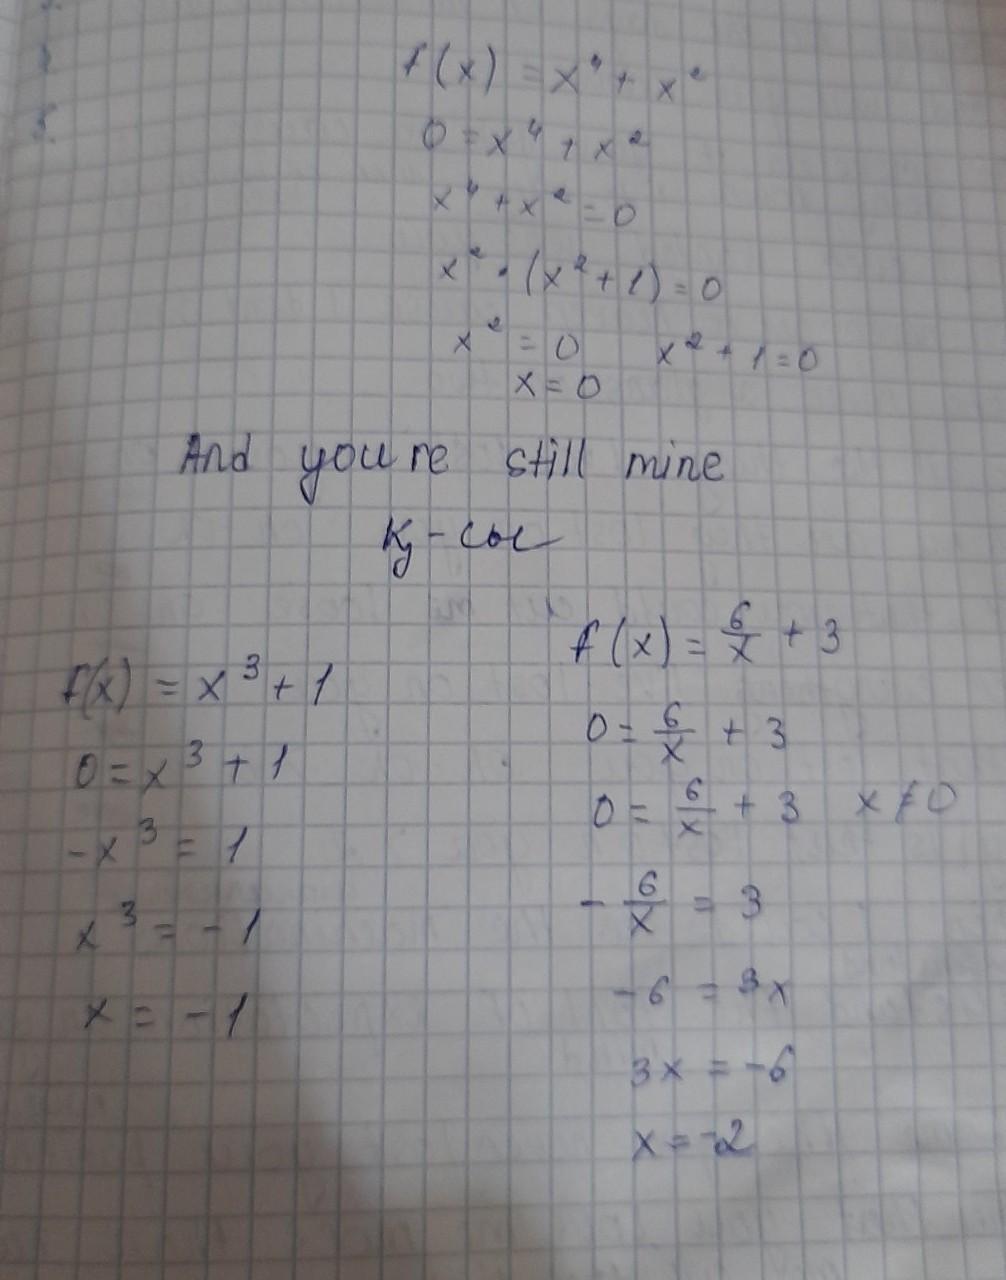 f(x) = x⁴ + x²
0 = x⁴ + x²
x⁴ + x² = 0
x² · (x² + 1) = 0
x² = 0 x² + 1 = 0
x = 0
And you're still mine
f(x) = x³ + 1
0 = x³ + 1
-x³ = 1
x³ = -1
x = -1
f(x) = 6/x + 3
0 = 6/x + 3
0 = 6/x + 3 x ≠ 0
- 6/x = 3
-6 = 3x
3x = -6
x = -2